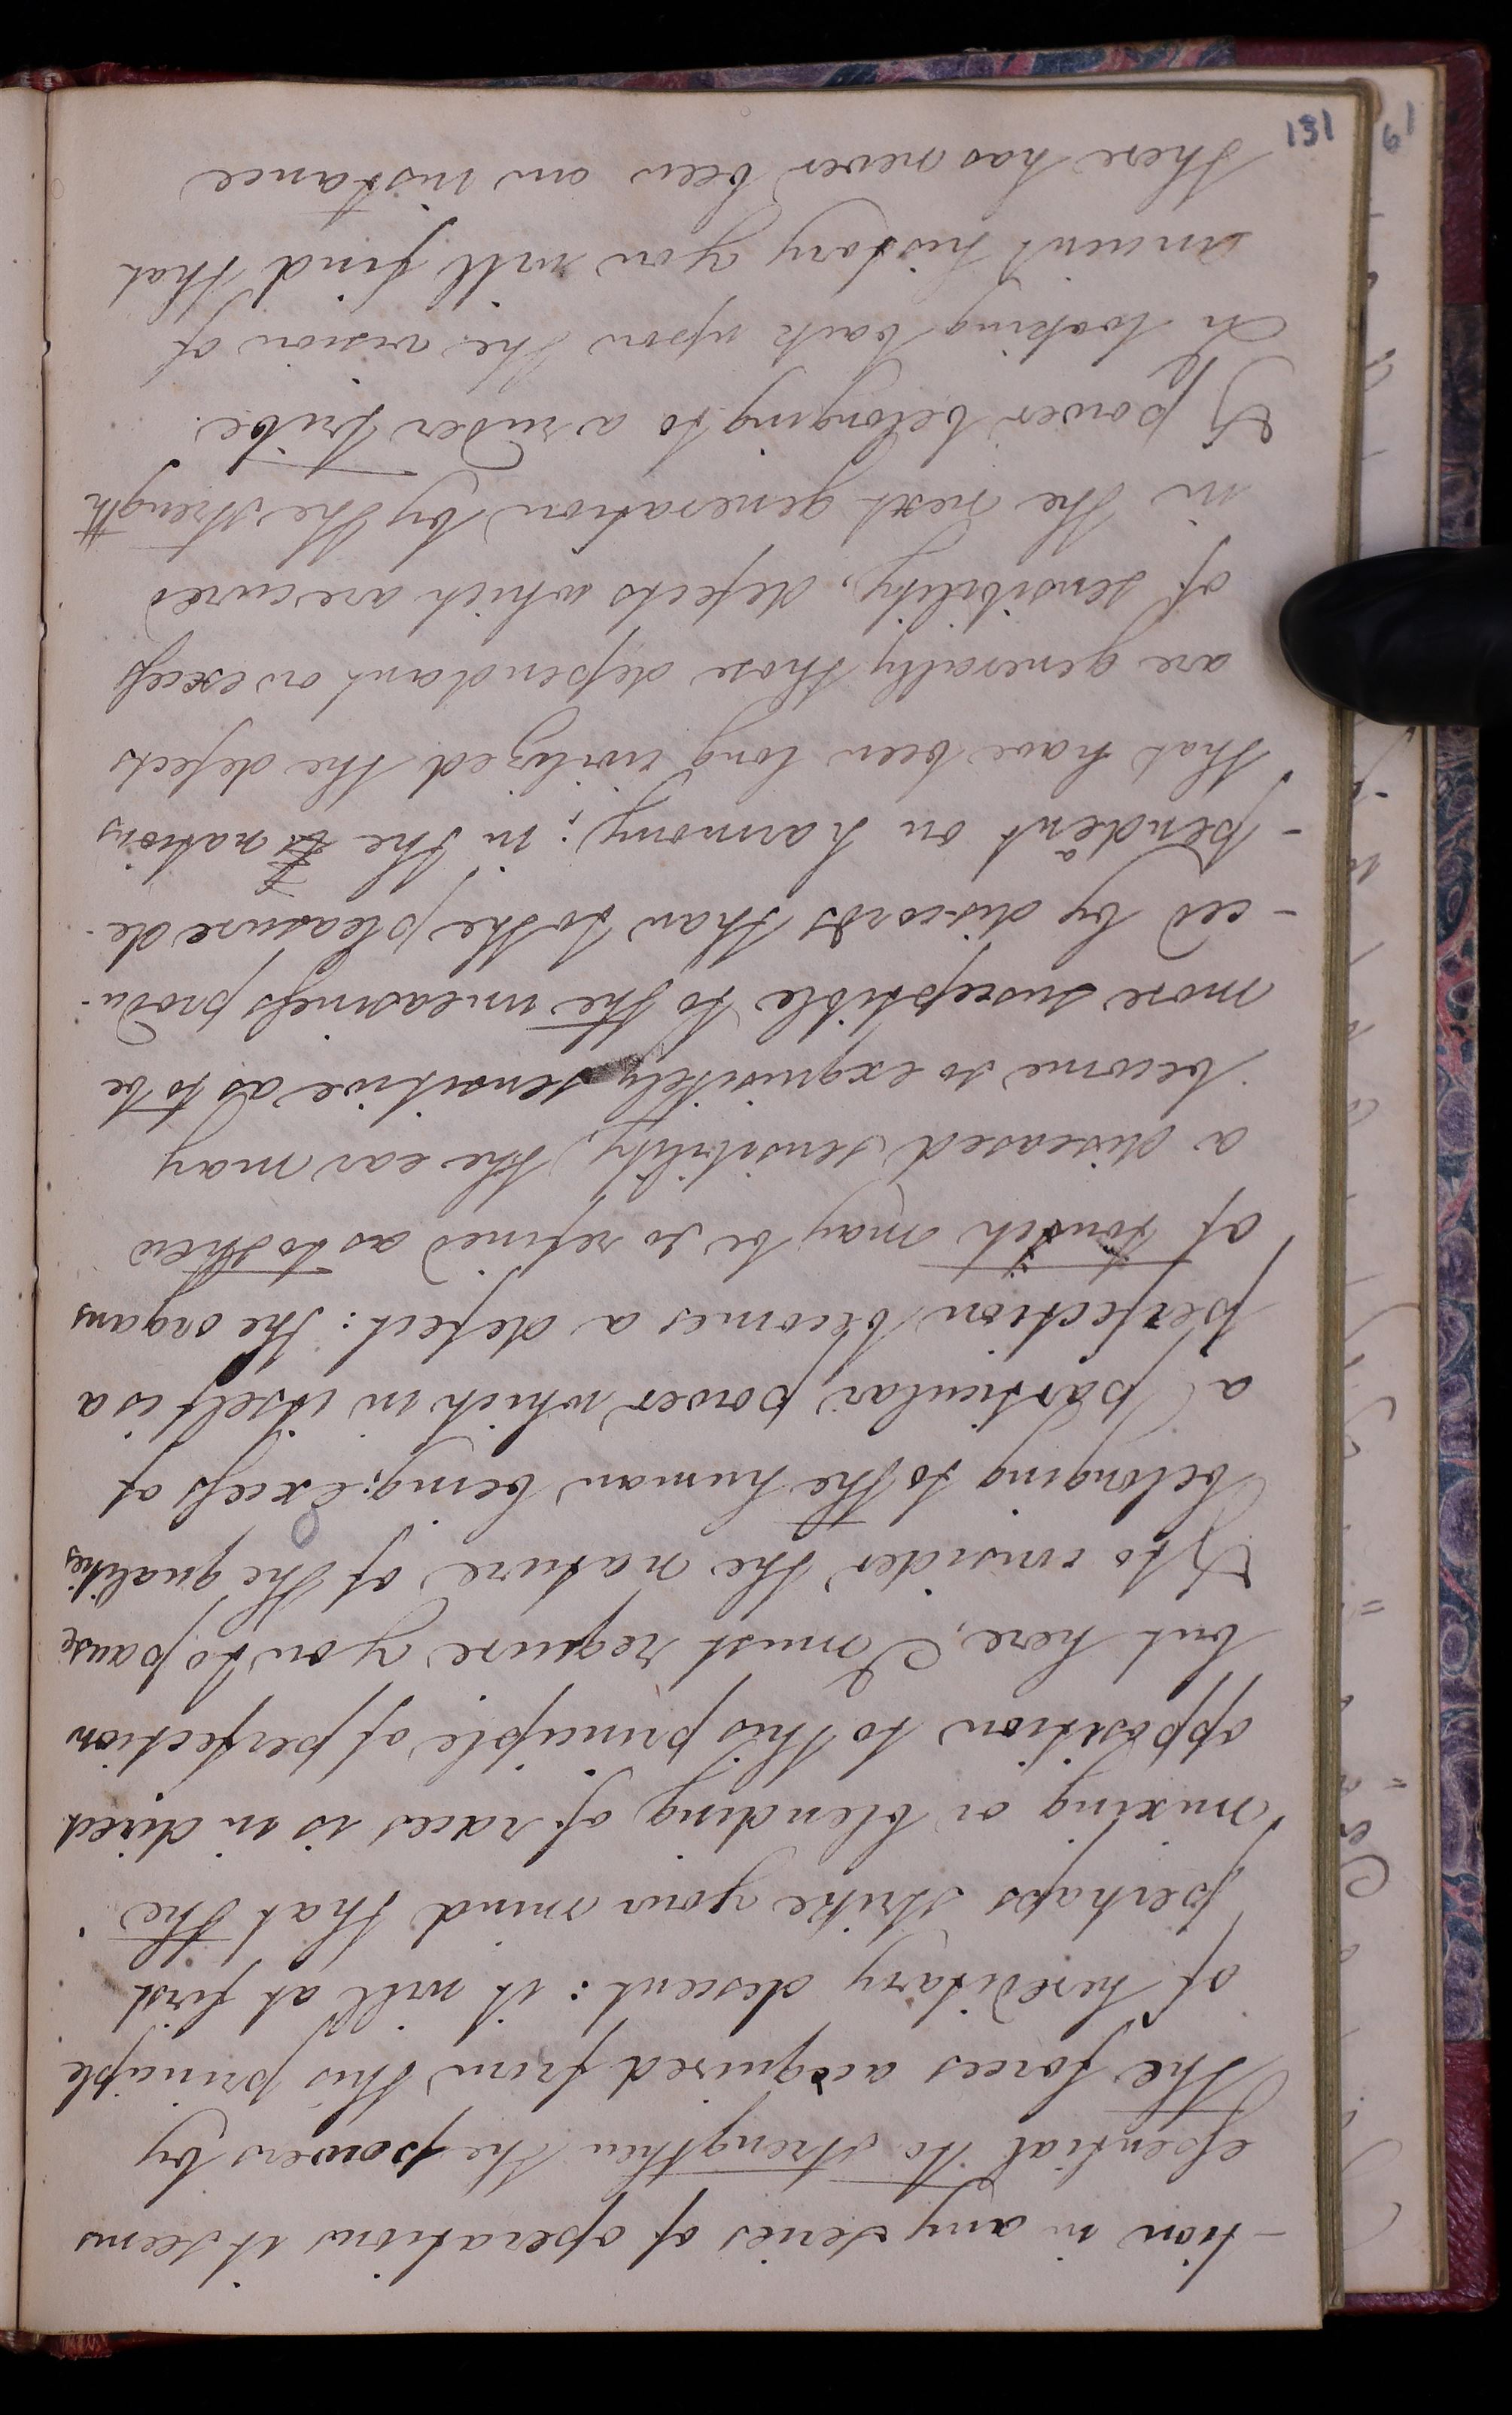 -tion in any series of operations it seems
eſsential to strengthen the powers by
the forces acquired from this principle
of hereditary descent: it will at first
perhaps strike your mind that the
mixing or blending of races is in direct
opposition to this principle of perfection
but here, I must require you to pause
& to consider the nature of the qualities
belonging to the human being; Exceſs of
a particular power which in itself is a
perfection becomes a defect: the organs
of touch may be so refined as to shew
a diseased sensibility, the ear may
become so exquisitely sensitive as to be
more susceptible to the uneasineſs produ-
-ced by discords than to the pleasure de-
-pendant on harmony; in the nations
that have been long civilized the defects
are generally those dependant on exceſs
of sensibility, defects which are cured
in the next generation by the strength
& power belonging to a ruder tribe.
In looking back upon the vision of
ancient history you will find that
there has never been an instance
131
61